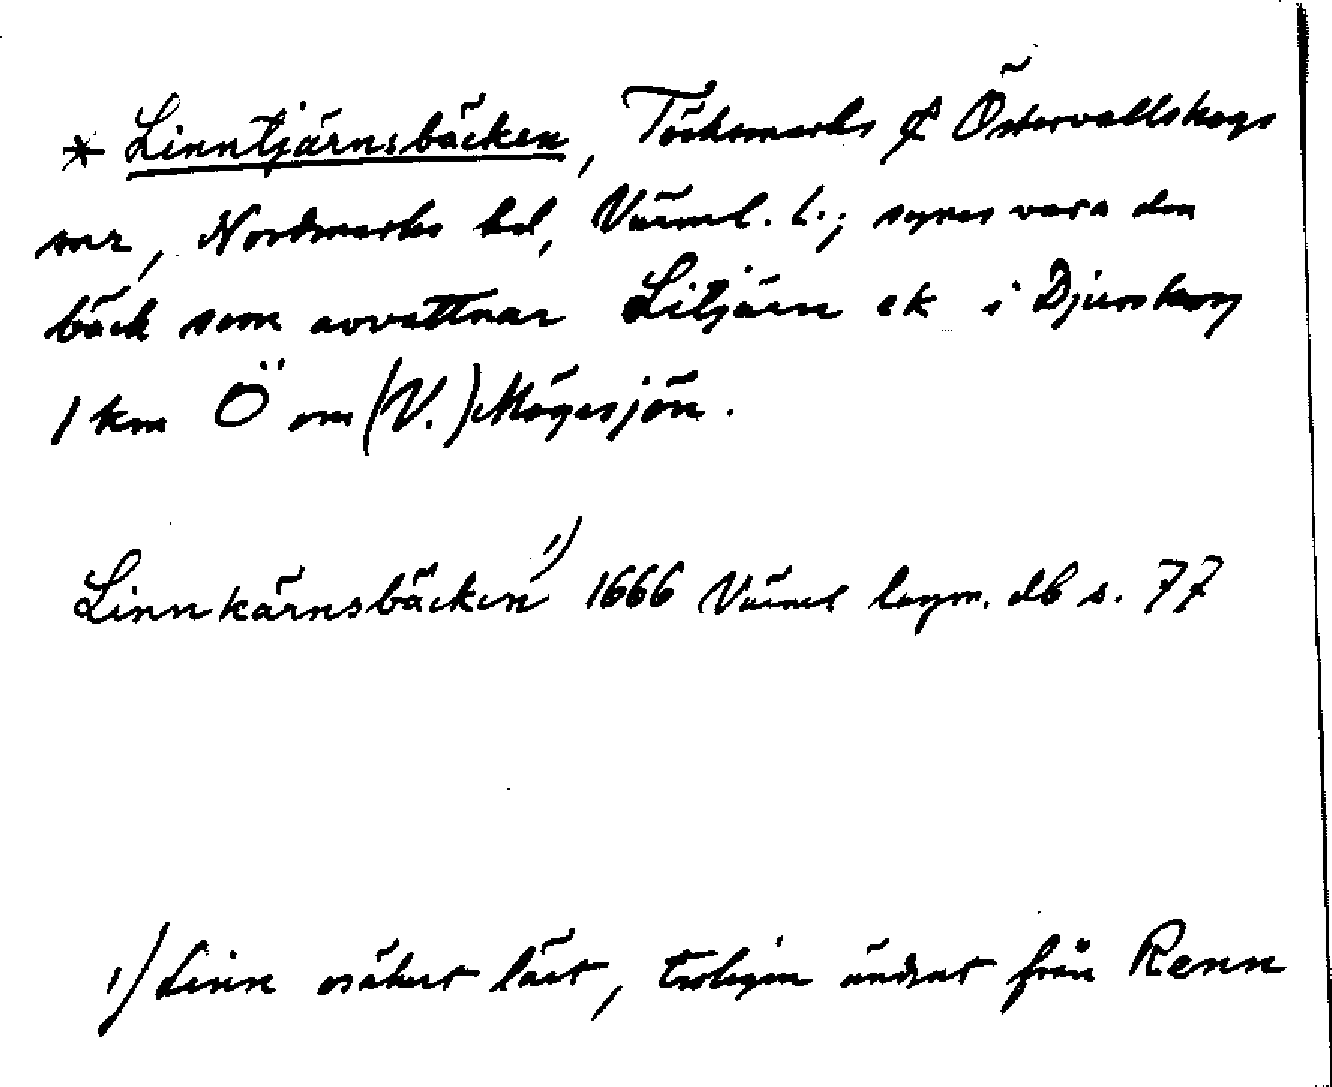 * Linntjärnsbäcken, Töcksmarks & Östervallskogs
snr, Nordmarks hd, Värml. l.; synes vara den
bäck som avvattnar Litjärn ek i Djurskog
1 km Ö om (V.) Mögesjön.
Linnkärnsbäcken 1) 1666 Värml lagm. db s. 77
1) Linn osäkert läst, troligen ändrat från Renn